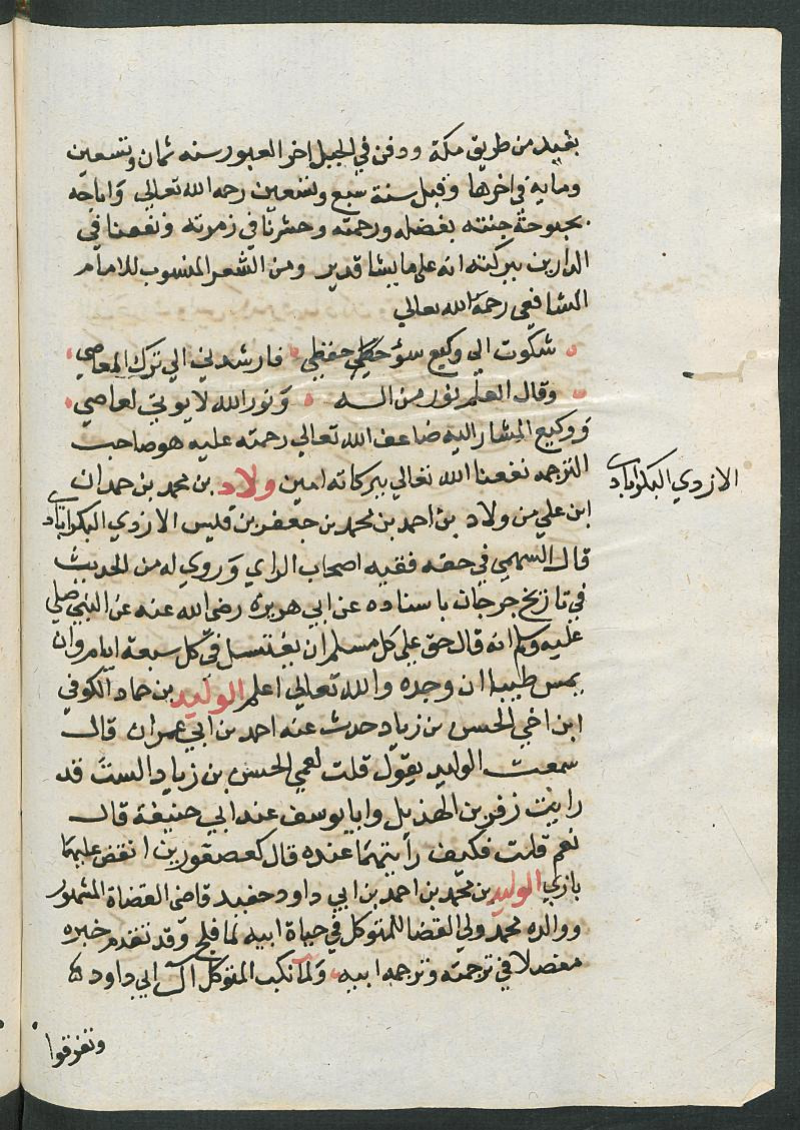 بفيد من طريق مكة ودفن في الجبل اخر العبور سنه ثمان وتسعين
ومايه في اخرها وقيل سنة سبع وتسعين رحمه الله تعالي واباحه
بحبوحة جنته بفضله ورحمته وحشرنا في زمرته ونفعنا في
الدارين ببركته انه علي ما يشا قدير ومن الشعر المنسوب للامام
الشافعي رحمه الله تعالي
شكوت الي وكيع سؤ حفظي فارشدني الي ترك المعاصي
وقال العلم نور من اله ونور الله لا يوتي لعاصي
ووكيع المشار اليه ضاعف الله تعالي رحمته عليه هو صاحب
الترجمه نفعنا الله تعالي ببركاته امين ولاد بن محمد بن حمدان
ابن علي من ولاد بن احمد بن محمد بن جعفر بن قيس الازدي البكراباذي
قال السهمي في حقه فقيه اصحاب الراي وروي له من الحديث
في تاريخ جرجان باسناده عن ابي هريرة رضي الله عنه عن النبي صلي
عليه وسلم انه قال حق علي كل مسلم ان يغتسل في كل سبعة ايام وان
يمس طيبا ان وجده والله تعالي اعلم الوليد بن حماد الكوفي
ابن اخي الحسن بن زياد حدث عنه احمد بن ابي عمران قال
سمعت الوليد يقول قلت لعمي الحسن بن زياد الست قد
رايت زفر بن الهذيل وابا يوسف عند ابي حنيفة قال
نعم قلت فكيف رايتهما عنده قال كعصفورين انقض عليهما
بازي الوليد بن محمد بن احمد بن ابي داود حفيد قاضي القضاة المشهور
ووالده محمد ولي القضا للمتوكل في حياة ابيه لما فلج وقد تقدم خبره
مفصلا في ترجمته وترجمه ابيه ولما نكب المتوكل ال ابي داود
وتفرقوا
الازدي البكراباذي